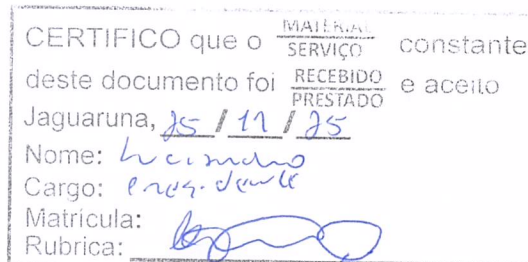 CERTIFICO que o MATERIAL SERVIÇO constante
deste documento foi RECEBIDO PRESTADO e aceito
Jaguaruna, 25 / 11 / 25
Nome:
Cargo: Presidente
Matrícula:
Rubrica: